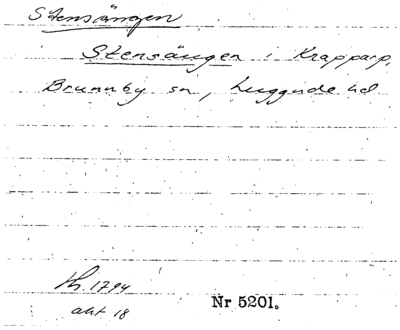 Stensängen
Stensängen i Krapparp,
Brunnby sn, Luggude hd
Lh. 1794
akt 18
Nr 5201.